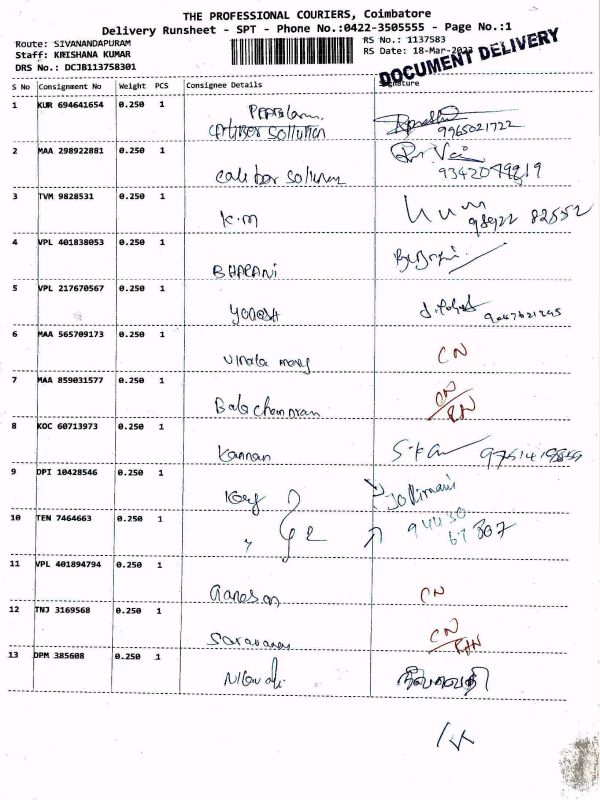 THE PROFESSIONAL COURIERS, Coimbatore
Delivery Runsheet - SPT - Phone No.:0422-3505555 - Page No.:1
Route: SIVANANDAPURAM
RS No.: 1137583
Staff: KRISHANA KUMAR
RS Date: 18-Mar-2023
DRS No.: DCJB113758301
DOCUMENT DELIVERY
S No Consignment No Weight PCS Consignee Details Signature
1 KUR 694641654 0.250 1
9965021722
2 MAA 298922881 0.250 1
9342079219
3 TVM 9828531 0.250 1
K.M
98922 82552
4 VPL 401838053 0.250 1
BHARANI
5 VPL 217670567 0.250 1
YOGESH
6 MAA 565709173 0.250 1
CN
7 MAA 859031577 0.250 1
Balachandran CN
8 KOC 60713973 0.250 1
Kannan
9751419859
9 DPI 10428546 0.250 1
94430
67807
10 TEN 7464663 0.250 1
11 VPL 401894794 0.250 1
Ganesan CN
12 TNJ 3169568 0.250 1
Saravanan CN
13 DPM 385608 0.250 1
நீலாவதி